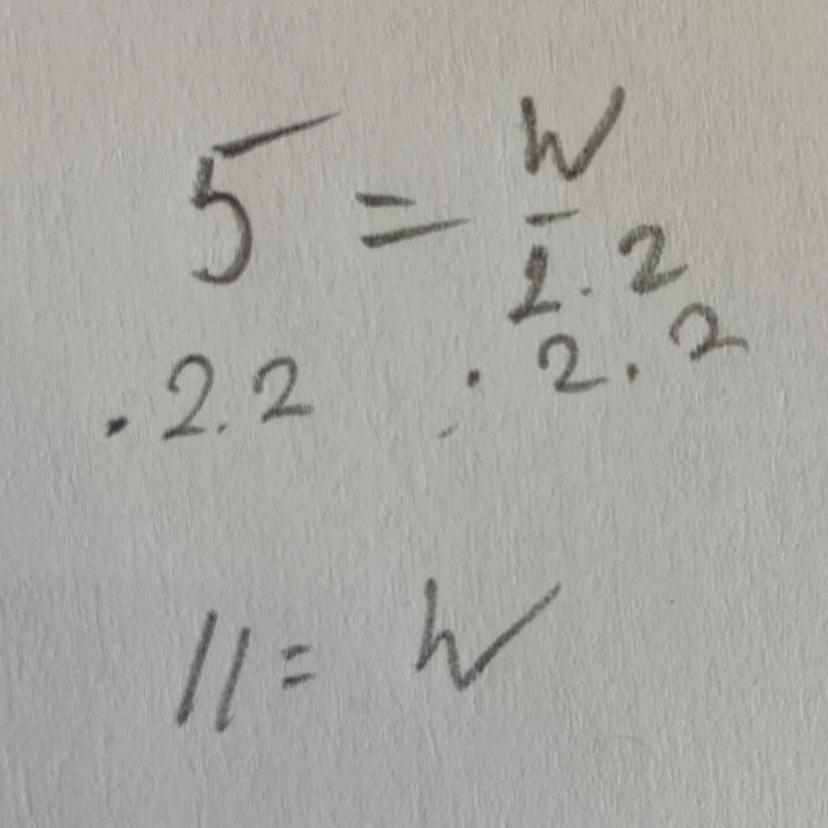 5 = W/2.2
·2.2 ·2.2
11 = W